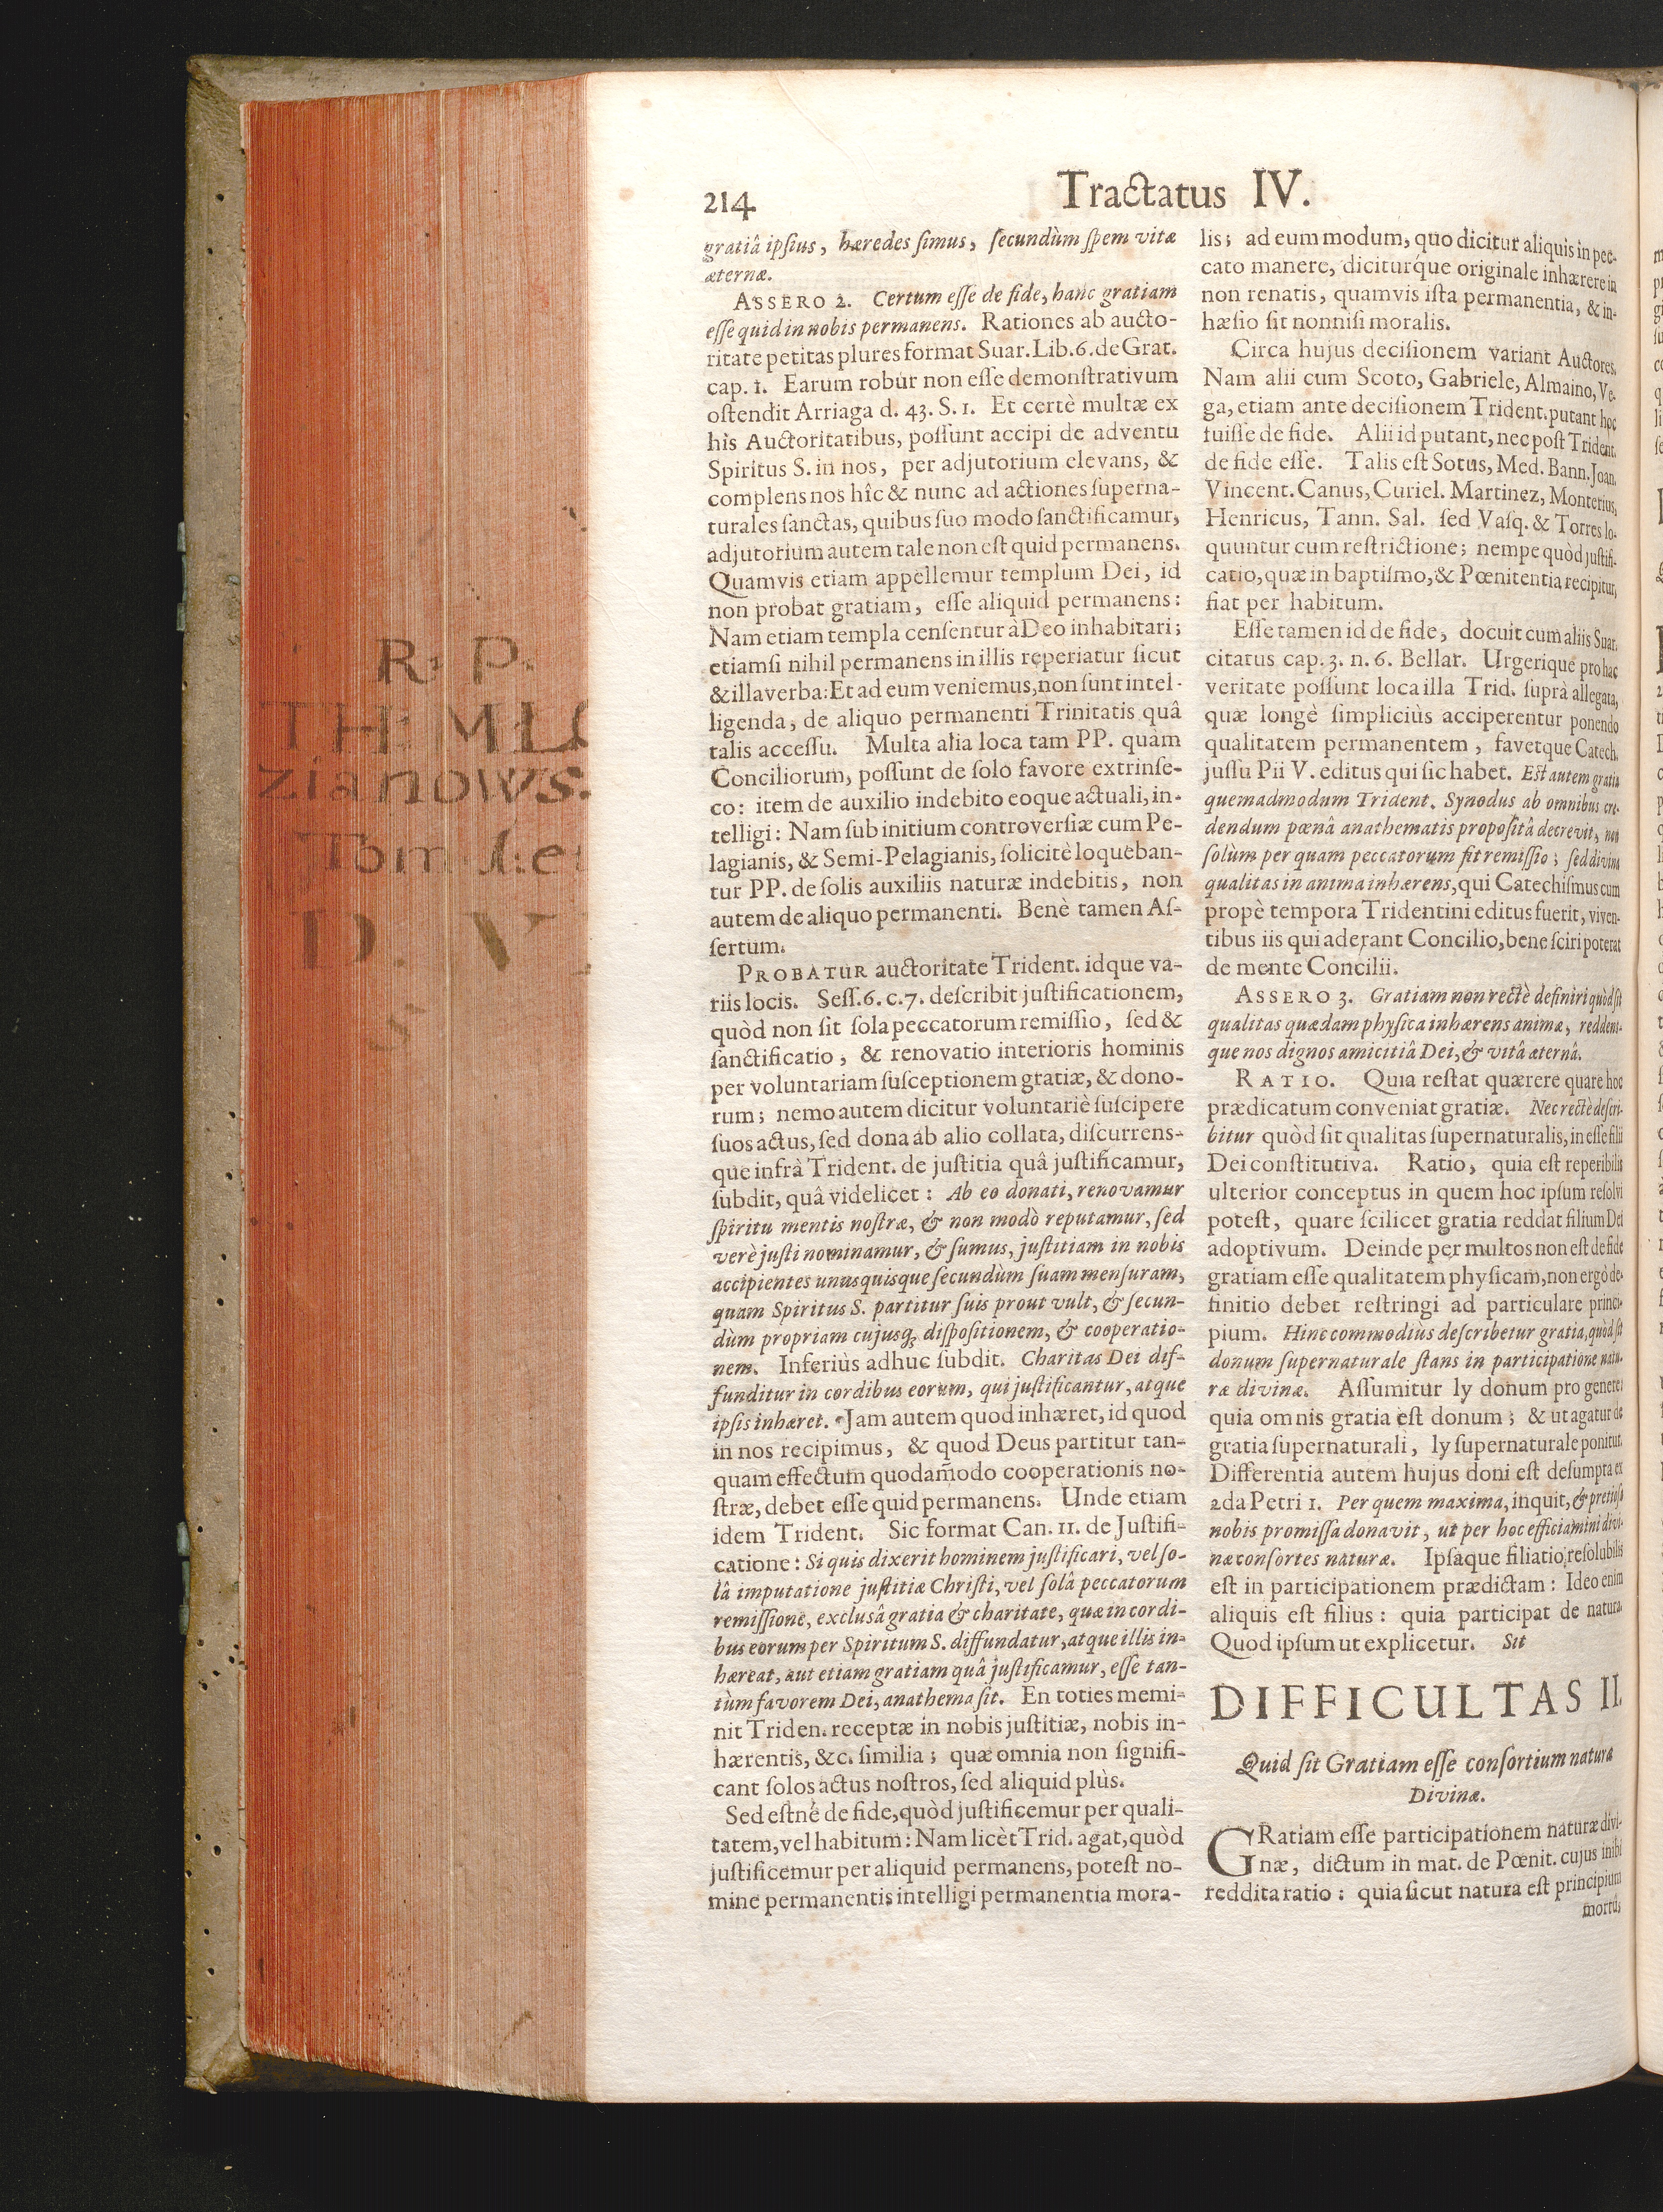 214
Tractatus IV.
gratiâ ipſius, hæredes ſimus, ſecundùm ſpem vitæ
æternæ.
ASSERO 2. Certum eſſe de fide, hanc gratiam
eſſe quid in nobis permanens. Rationes ab aucto-
ritate petitas plures format Suar. Lib. 6. de Grat.
cap. 1. Earum robur non eſſe demonſtrativum
oſtendit Arriaga d. 43. S. 1. Et certè multæ ex
his Auctoritatibus, poſſunt accipi de adventu
Spiritus S. in nos, per adjutorium elevans, &
complens nos hîc & nunc ad actiones ſuperna-
turales ſanctas, quibus ſuo modo ſanctificamur,
adjutorium autem tale non eſt quid permanens.
Quamvis etiam appellemur templum Dei, id
non probat gratiam, eſſe aliquid permanens:
Nam etiam templa cenſentur à Deo inhabitari;
etiamſi nihil permanens in illis reperiatur ſicut
& illa verba: Et ad eum veniemus, non ſunt intel-
ligenda, de aliquo permanenti Trinitatis quâ
talis acceſſu. Multa alia loca tam PP. quàm
Conciliorum, poſſunt de ſolo favore extrinſe-
co: item de auxilio indebito eoque actuali, in-
telligi: Nam ſub initium controverſiæ cum Pe-
lagianis, & Semi-Pelagianis, ſolicitè loqueban-
tur PP. de ſolis auxiliis naturæ indebitis, non
autem de aliquo permanenti. Benè tamen Aſ-
ſertum.
PROBATUR auctoritate Trident. idque va-
riis locis. Seſſ. 6. c. 7. deſcribit juſtificationem,
quòd non ſit ſola peccatorum remiſſio, ſed &
ſanctificatio, & renovatio interioris hominis
per voluntariam ſuſceptionem gratiæ, & dono-
rum; nemo autem dicitur voluntariè ſuſcipere
ſuos actus, ſed dona ab alio collata, diſcurrens-
que infrà Trident. de juſtitia quâ juſtificamur,
ſubdit, quâ videlicet: Ab eo donati, renovamur
ſpiritu mentis noſtræ, & non modò reputamur, ſed
verè juſti nominamur, & ſumus, juſtitiam in nobis
accipientes unusquisque ſecundùm ſuam menſuram,
quam Spiritus S. partitur ſuis prout vult, & ſecun-
dùm propriam cujusq; diſpoſitionem, & cooperatio-
nem. Inferiùs adhuc ſubdit. Charitas Dei dif-
funditur in cordibus eorum, qui juſtificantur, atque
ipſis inhæret. Jam autem quod inhæret, id quod
in nos recipimus, & quod Deus partitur tan-
quam effectum quodam̃odo cooperationis no-
ſtræ, debet eſſe quid permanens. Unde etiam
idem Trident. Sic format Can. 11. de Juſtifi-
catione: Si quis dixerit hominem juſtificari, vel ſo-
lâ imputatione juſtitiæ Chriſti, vel ſolâ peccatorum
remiſſione, excluſâ gratia & charitate, quæ in cordi-
bus eorum per Spiritum S. diffundatur, atque illis in-
hæreat, aut etiam gratiam quâ juſtificamur, eſſe tan-
tùm favorem Dei, anathema ſit. En toties memi-
nit Triden. receptæ in nobis juſtitiæ, nobis in-
hærentis, &c. ſimilia; quæ omnia non ſignifi-
cant ſolos actus noſtros, ſed aliquid plùs.
Sed eſtné de fide, quòd juſtificemur per quali-
tatem, vel habitum: Nam licèt Trid. agat, quòd
juſtificemur per aliquid permanens, poteſt no-
mine permanentis intelligi permanentia mora-
lis; ad eum modum, quo dicitur aliquis in pec-
cato manere, diciturq́ue originale inhærere in
non renatis, quamvis iſta permanentia, & in-
hæſio ſit nonniſi moralis.
Circa hujus deciſionem variant Auctores,
Nam alii cum Scoto, Gabriele, Almaino, Ve-
ga, etiam ante deciſionem Trident. putant hoc
fuiſſe de fide. Alii id putant, nec poſt Trident.
de fide eſſe. Talis eſt Sotus, Med. Bann. Joan.
Vincent. Canus, Curiel. Martinez, Monterius,
Henricus, Tann. Sal. ſed Vaſq. & Torres lo-
quuntur cum reſtrictione; nempe quòd juſtifi-
catio, quæ in baptiſmo, & Pœnitentia recipitur,
fiat per habitum.
Eſſe tamen id de fide, docuit cum aliis Suar.
citatus cap. 3. n. 6. Bellar. Urgerique pro hac
veritate poſſunt loca illa Trid. ſuprà allegata,
quæ longè ſimpliciùs acciperentur ponendo
qualitatem permanentem, favetque Catech.
juſſu Pii V. editus qui ſic habet. Eſt autem gratia
quemadmodum Trident. Synodus ab omnibus cre-
dendum pœnâ anathematis propoſitâ decrevit, non
ſolùm per quam peccatorum fit remiſſio; ſed divina
qualitas in anima inhærens, qui Catechiſmus cum
propè tempora Tridentini editus fuerit, viven-
tibus iis qui aderant Concilio, bene ſciri poterat
de mente Concilii.
ASSERO 3. Gratiam non rectè definiri quòd ſit
qualitas quædam phyſica inhærens animæ, reddens-
que nos dignos amicitiâ Dei, & vitâ æternâ.
RATIO. Quia reſtat quærere quare hoc
prædicatum conveniat gratiæ. Nec rectè deſcri-
bitur quòd ſit qualitas ſupernaturalis, in eſſe filii
Dei conſtitutiva. Ratio, quia eſt reperibilis
ulterior conceptus in quem hoc ipſum reſolvi
poteſt, quare ſcilicet gratia reddat filium Dei
adoptivum. Deinde per multos non eſt de fide
gratiam eſſe qualitatem phyſicam, non ergò de-
finitio debet reſtringi ad particulare princi-
pium. Hinc commodius deſcribetur gratia, quòd ſit
donum ſupernaturale ſtans in participatione natu-
ræ divinæ. Aſſumitur ly donum pro genere:
quia omnis gratia eſt donum; & ut agatur de
gratia ſupernaturali, ly ſupernaturale ponitur.
Differentia autem hujus doni eſt deſumpta ex
2da Petri 1. Per quem maxima, inquit, & pretioſa
nobis promiſſa donavit, ut per hoc efficiamini divi-
næ conſortes naturæ. Ipſaque filiatio, reſolubilis
eſt in participationem prædictam: Ideo enim
aliquis eſt filius: quia participat de natura.
Quod ipſum ut explicetur. Sit
DIFFICULTAS II.
Quid ſit Gratiam eſſe conſortium naturæ
Divinæ.
GRatiam eſſe participationem naturæ divi-
næ, dictum in mat. de Pœnit. cujus inibi
reddita ratio: quia ſicut natura eſt principium
mortu,
R. P.
TH: MŁO
zianows:
Tom
D. V
S